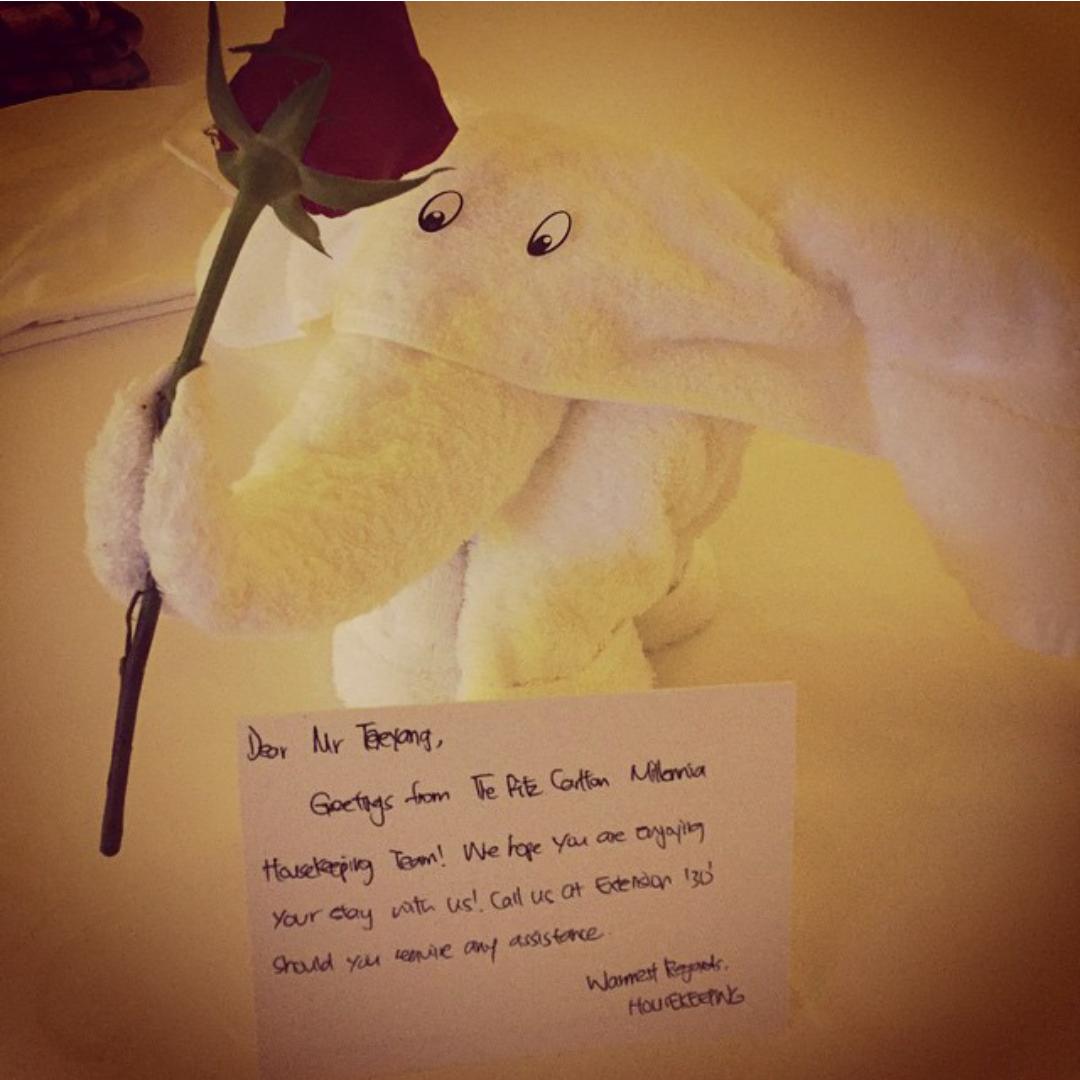 Dear Mr Taeyang,
Greetings from The Ritz Carlton Millennia
Housekeeping Team! We hope you are enjoying
your stay with us! Call us at Extension '30'
should you require any assistance.
Warmest Regards,
HOUSEKEEPING